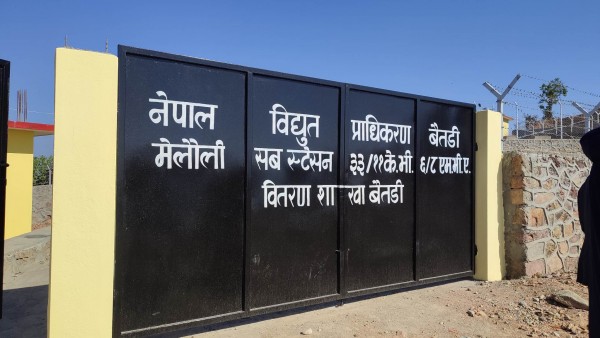 नेपाल विद्युत प्राधिकरण बैतडी
मेलौली सब स्टेसन ३३/११के.भी. ६/८ एम.भी.ए.
वितरण शाखा बैतडी